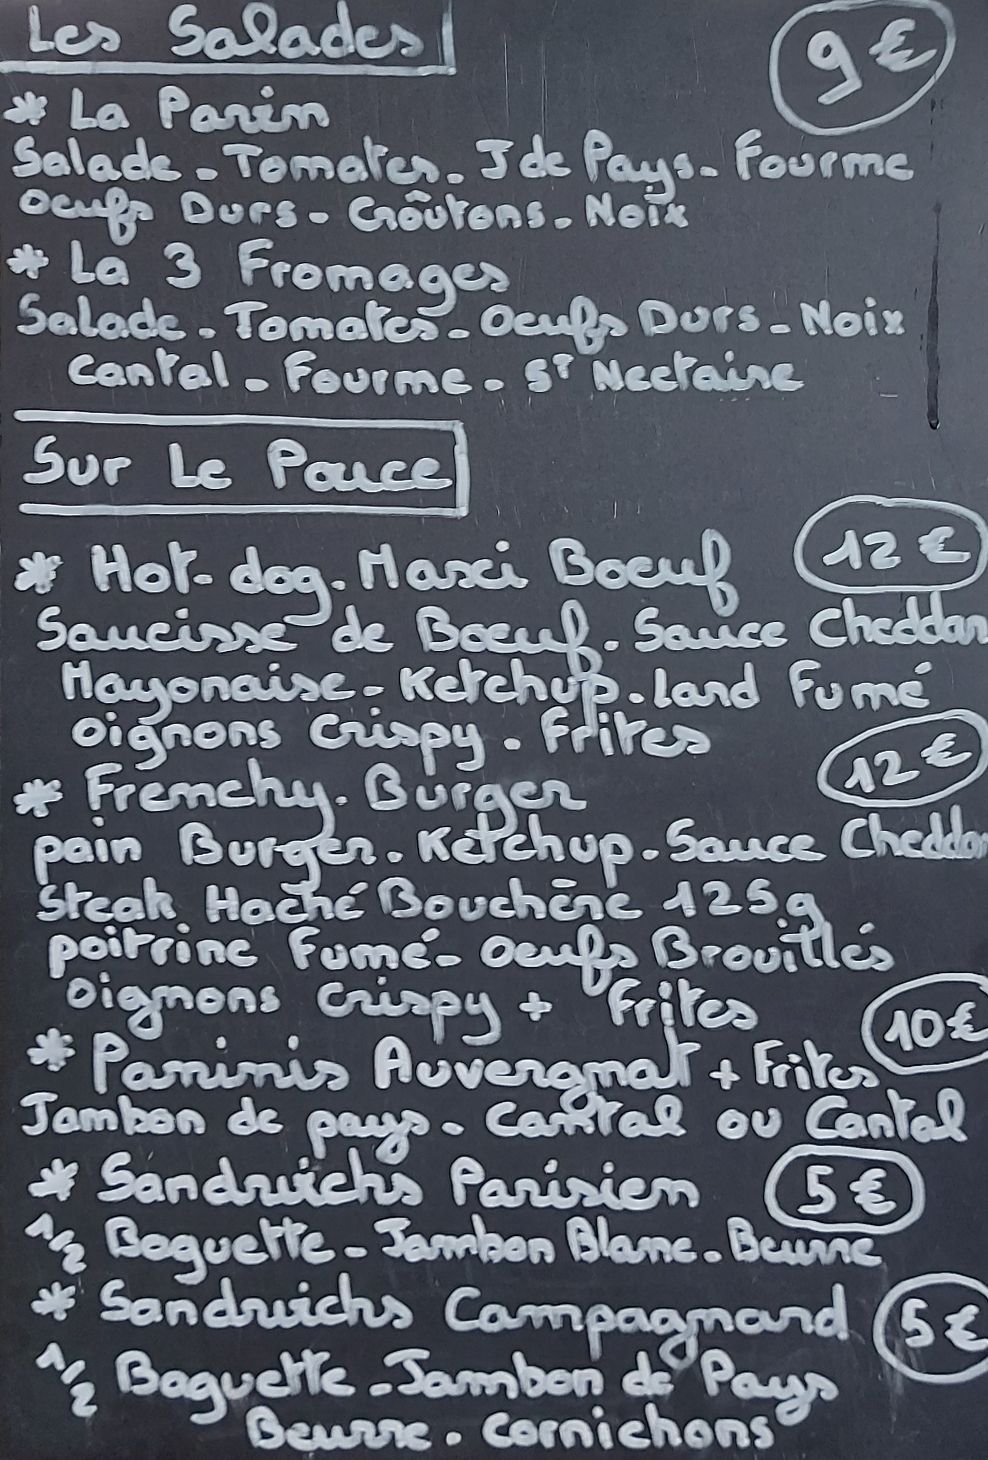 Les Salades 9 €
* La Parim
Salade - Tomates - J de Pays - Fourme
Oeufs Durs - Croûtons - Noix
* La 3 Fromages
Salade - Tomates - Oeufs Durs - Noix
Cantal - Fourme - St Nectaire
Sur Le Pouce
* Hot-dog. Maxi Boeuf 12 €
Saucisse de Boeuf. Sauce Cheddar
Mayonaise - Ketchup. Lard Fumé
Oignons Crispy. Frites
* Frenchy. Burger 12 €
pain Burger. Ketchup. Sauce Cheddar
Steak Haché Bouchère 125g
poitrine Fumé - Oeufs Brouillés
Oignons Crispy + Frites
* Paninis Auvergnat + Frites 10 €
Jambon de pays - Cantal ou Cantal
* Sandwichs Parisien 5 €
1/2 Baguette - Jambon Blanc - Beurre
* Sandwichs Campagnard 5 €
1/2 Baguette - Jambon de Pays
Beurre. Cornichons